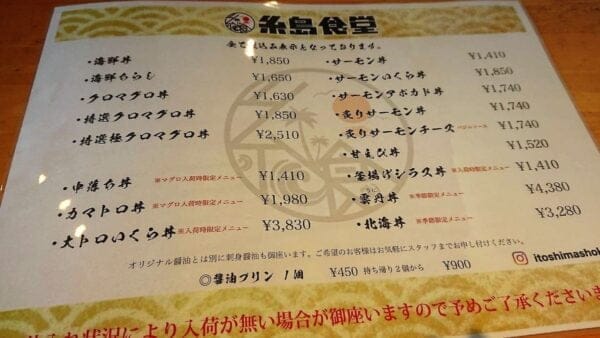 糸島食堂
全て税込み表示となっております。
・海鮮丼 ¥1,850
・海鮮ちらし ¥1,650
・クロマグロ丼 ¥1,630
・特選クロマグロ丼 ¥1,850
・特選極クロマグロ丼 ¥2,510
・中落ち丼 ※マグロ入荷時限定メニュー ¥1,410
・カマトロ丼 ※マグロ入荷時限定メニュー ¥1,980
・大トロいくら丼 ※入荷時限定メニュー ¥3,830
・サーモン丼 ¥1,410
・サーモンいくら丼 ¥1,850
・サーモンアボカド丼 ¥1,740
・炙りサーモン丼 ¥1,740
・炙りサーモンチーズ バジルソース ¥1,740
・甘えび丼 ¥1,520
・釜揚げシラス丼 ※入荷時限定メニュー ¥1,410
・雲丹丼 ※季節限定メニュー ¥4,380
・北海丼 ※季節限定メニュー ¥3,280
オリジナル醤油とは別に刺身醤油も御座います。ご希望のお客様はお気軽にスタッフまでお申し付けください。
◎醤油プリン 1個 ¥450 持ち帰り2個から ¥900
itoshimasho
状況により入荷が無い場合が御座いますので予めご了承ください